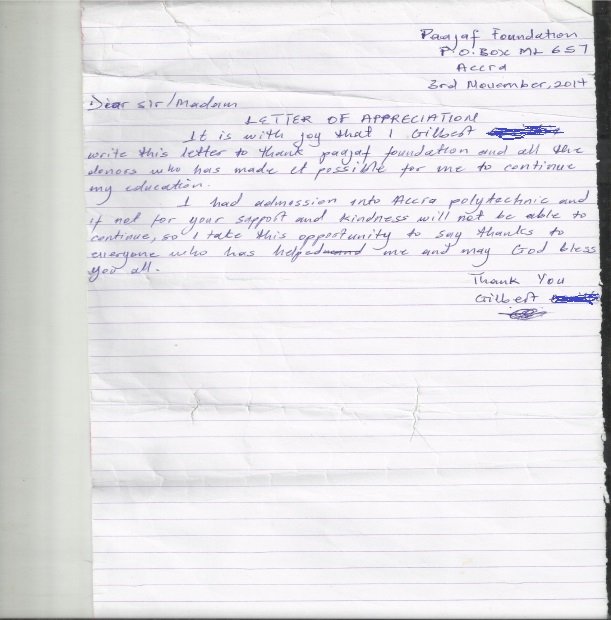 Paajaf Foundation
P.O.Box ML 657
Accra
3rd November, 2017
Dear Sir/Madam
LETTER OF APPRECIATION
It is with joy that I Gilbert
write this letter to thank paajaf foundation and all the
donors who has made it possible for me to continue
my education.
I had admission into Accra polytechnic and
if not for your support and kindness will not be able to
continue, so I take this opportunity to say thanks to
everyone who has helped me and may God bless
you all.
Thank You
Gilbert